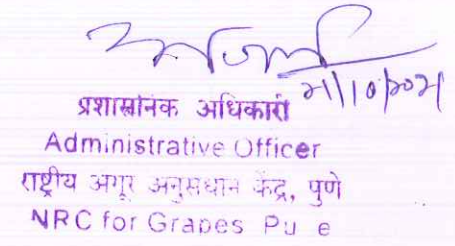 प्रशासनिक अधिकारी
Administrative Officer
राष्ट्रीय अंगूर अनुसंधान केंद्र, पुणे
NRC for Grapes Pu e